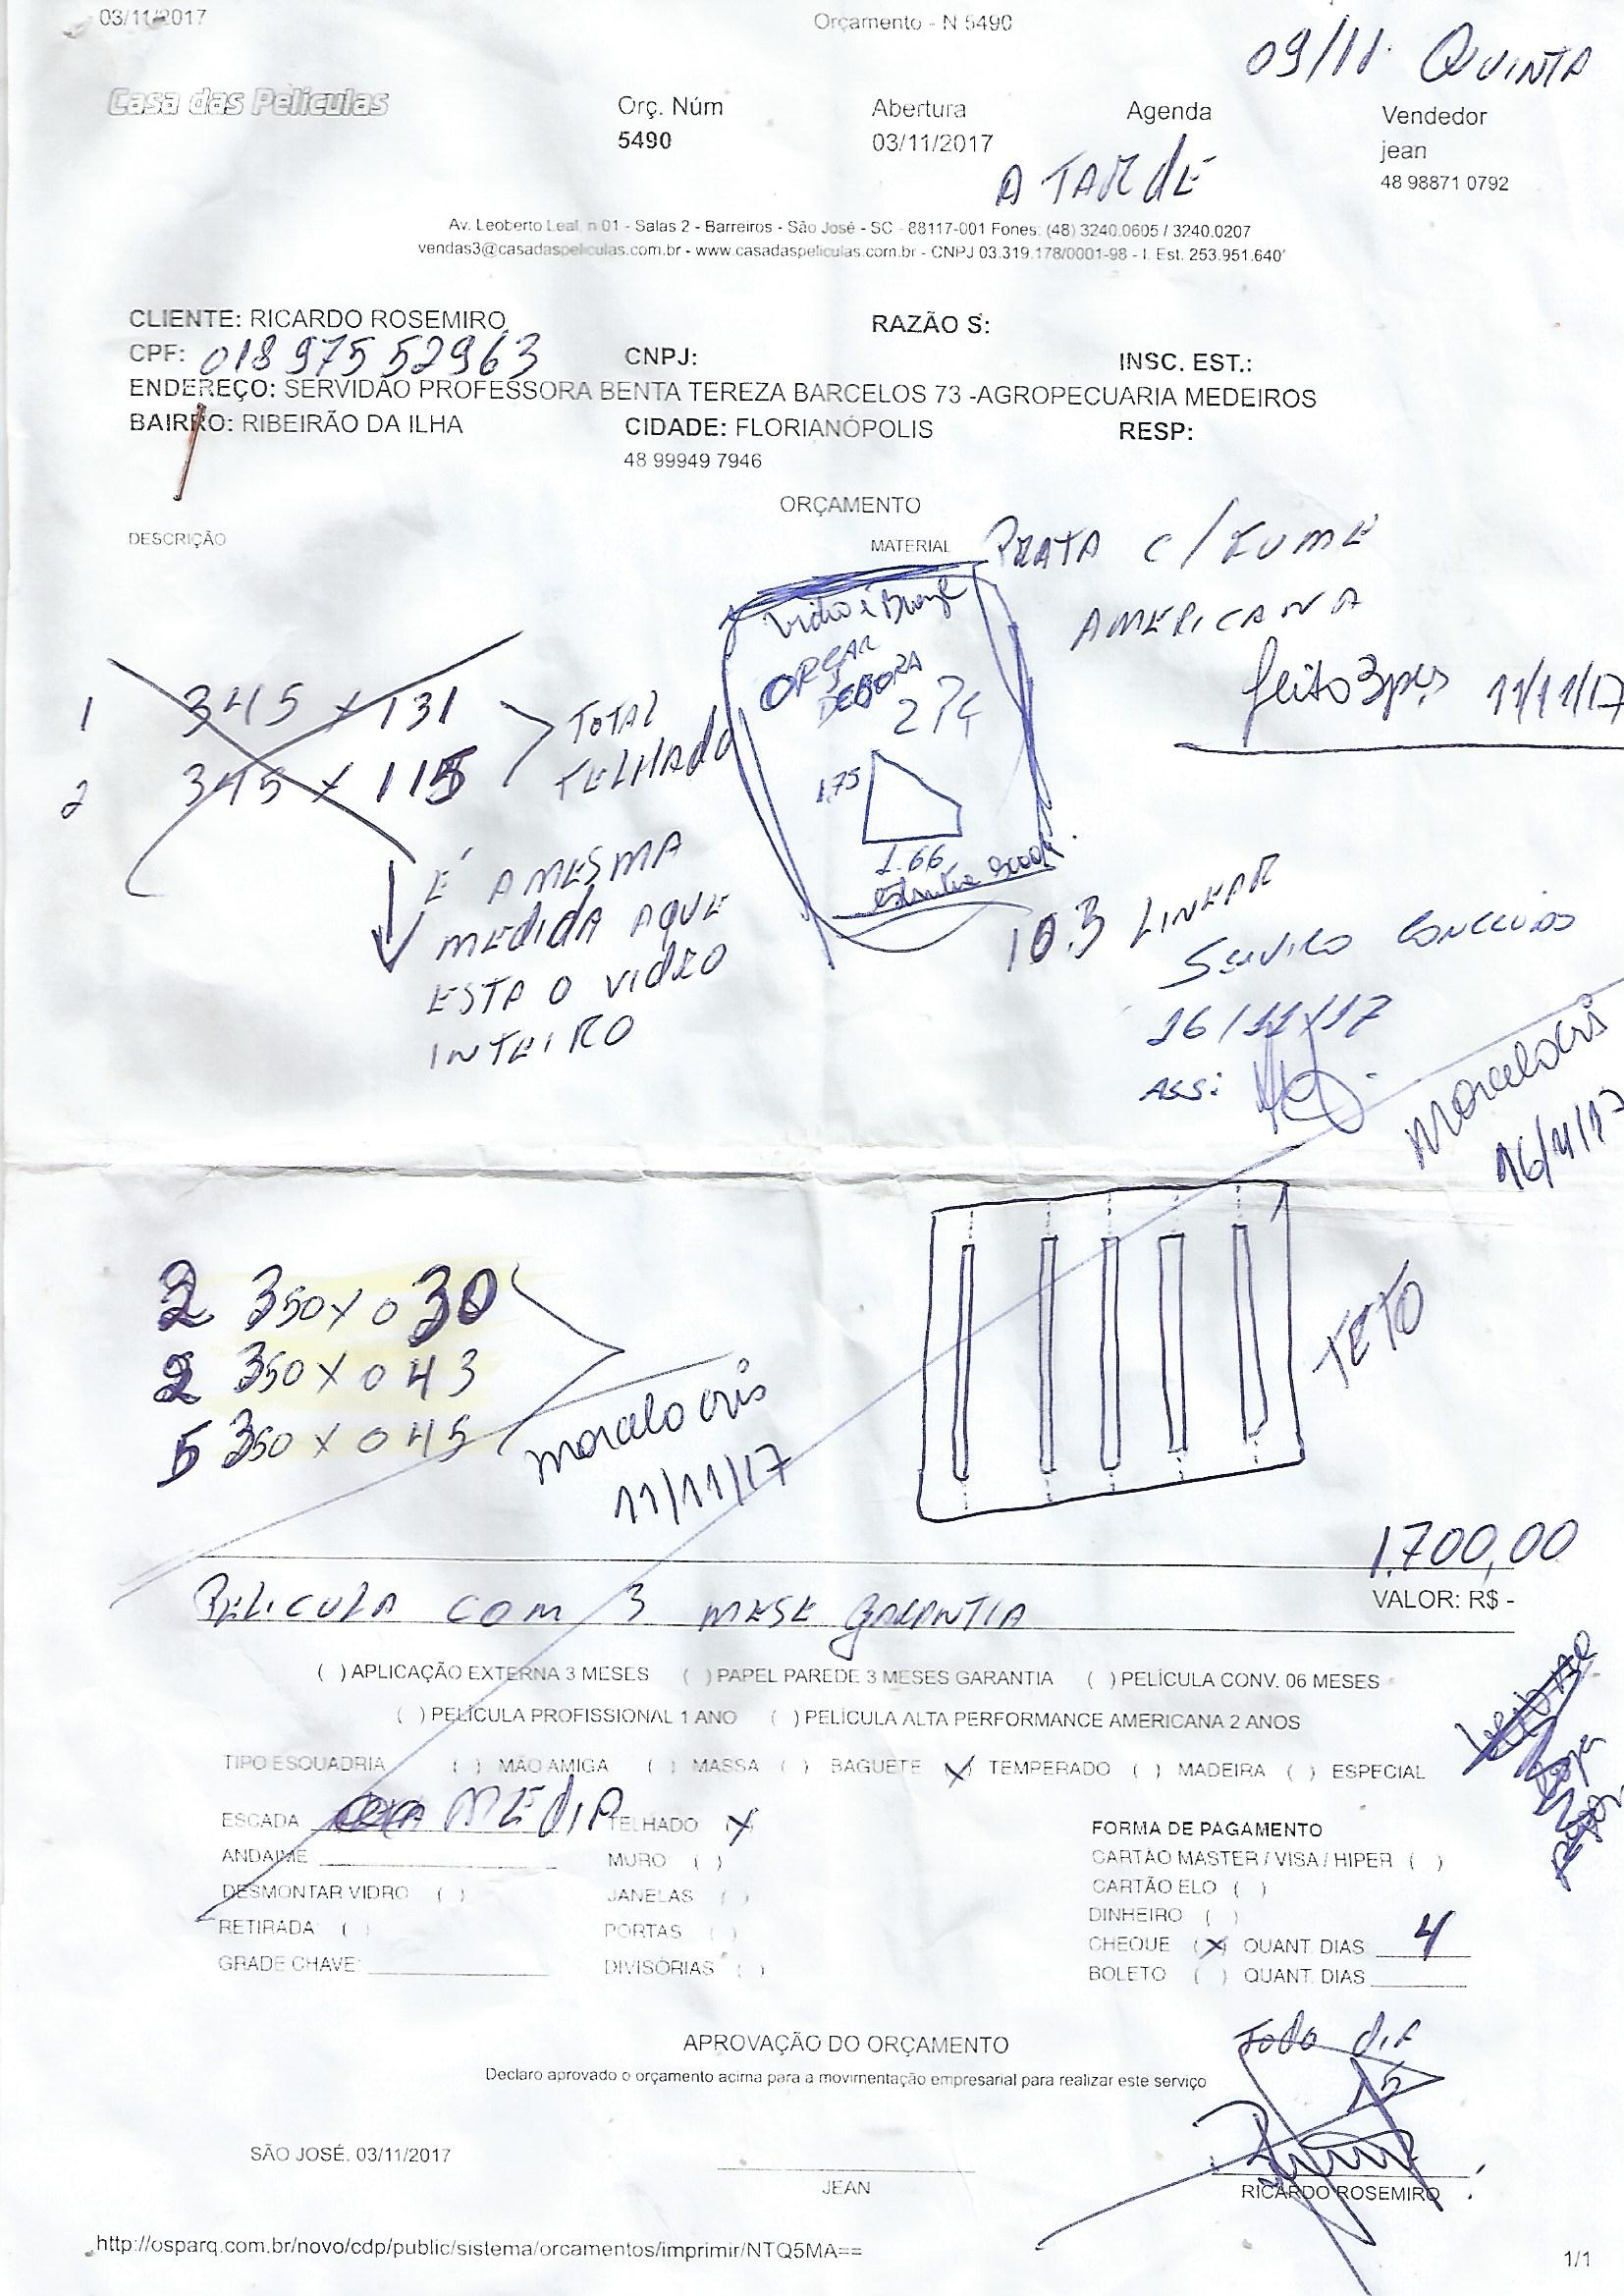 03/11/2017
Orçamento - N 5490
09/11 QUINTA
Casa das Películas
Orç. Núm
5490
Abertura
03/11/2017
Agenda
A TARdE
Vendedor
jean
48 98871 0792
Av. Leoberto Leal, n 01 - Salas 2 - Barreiros - São José - SC - 88117-001 Fones: (48) 3240.0605 / 3240.0207
vendas3@casadaspeliculas.com.br - www.casadaspeliculas.com.br - CNPJ 03.319.178/0001-98 - I. Est. 253.951.640
CLIENTE: RICARDO ROSEMIRO
RAZÃO S:
CPF: 018 975 52963
CNPJ:
INSC. EST.:
ENDEREÇO: SERVIDÃO PROFESSORA BENTA TEREZA BARCELOS 73 -AGROPECUARIA MEDEIROS
BAIRRO: RIBEIRÃO DA ILHA
CIDADE: FLORIANÓPOLIS
RESP:
48 99949 7946
ORÇAMENTO
DESCRIÇÃO
MATERIAL
PRATA C/ FUME
AMERICANA
feito 3 pçs 11/11/17
ORÇAR
DEBORA
1.75
1.66
1 345 x 131
2 345 x 115
TOTAL
TELHADO
É A MESMA
MEDIDA AQUE
ESTA O VIDRO
INTEIRO
10.3 LINEAR
SERVIÇO CONCLUIDO
16/11/17
ASS:
marcelo cris
16/11/17
2 350 x 0 30
2 350 x 0 43
5 350 x 0 45
marcelo cris
11/11/17
TETO
1.700,00
VALOR: R$ -
PELICULA COM 3 MESE GARANTIA
( ) APLICAÇÃO EXTERNA 3 MESES ( ) PAPEL PAREDE 3 MESES GARANTIA ( ) PELÍCULA CONV. 06 MESES
( ) PELÍCULA PROFISSIONAL 1 ANO ( ) PELÍCULA ALTA PERFORMANCE AMERICANA 2 ANOS
TIPO ESQUADRIA ( ) MÃO AMIGA ( ) MASSA ( ) BAGUETE (X) TEMPERADO ( ) MADEIRA ( ) ESPECIAL
ESCADA MEdIA
TELHADO (X)
ANDAIME
MURO ( )
DESMONTAR VIDRO ( )
JANELAS ( )
RETIRADA ( )
PORTAS ( )
GRADE CHAVE:
DIVISÓRIAS ( )
FORMA DE PAGAMENTO
CARTÃO MASTER / VISA / HIPER ( )
CARTÃO ELO ( )
DINHEIRO ( )
CHEQUE (X) QUANT. DIAS 4
BOLETO ( ) QUANT. DIAS
TODO DIA
15
APROVAÇÃO DO ORÇAMENTO
Declaro aprovado o orçamento acima para a movimentação empresarial para realizar este serviço
SÃO JOSÉ. 03/11/2017
JEAN
RICARDO ROSEMIRO
http://osparq.com.br/novo/cdp/public/sistema/orcamentos/imprimir/NTQ5MA==
1/1